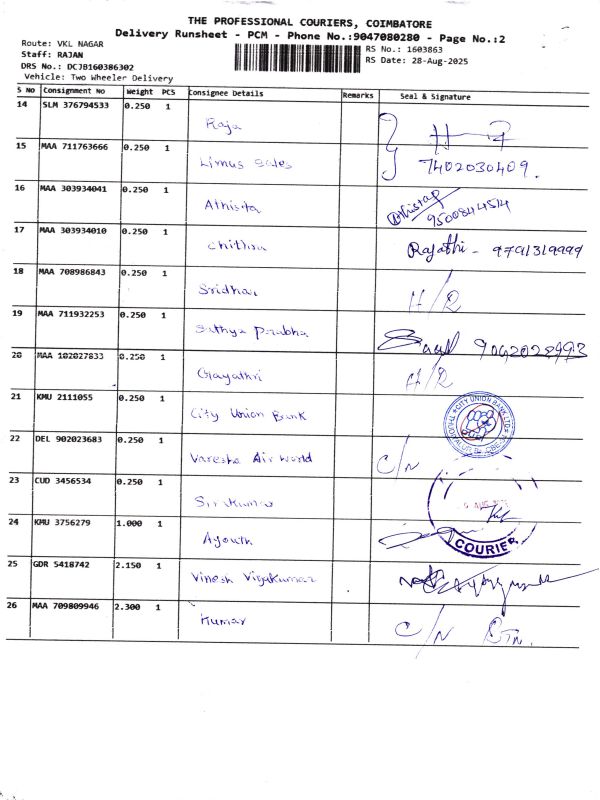 THE PROFESSIONAL COURIERS, COIMBATORE
Delivery Runsheet - PCM - Phone No.:9047080280 - Page No.:2
Route: VKL NAGAR
Staff: RAJAN
DRS No.: DCJB160386302
Vehicle: Two Wheeler Delivery
RS No.: 1603863
RS Date: 28-Aug-2025
S No Consignment No Weight PCS Consignee Details Remarks Seal & Signature
14 SLM 376794533 0.250 1 Raja
15 MAA 711763666 0.250 1 Limus Sales 7402030409.
16 MAA 303934041 0.250 1 Athista 9500844514
17 MAA 303934010 0.250 1 Chithra Rajathi - 9791319999
18 MAA 708986843 0.250 1 Sridhar H/R
19 MAA 711932253 0.250 1 Sathya Prabha
20 MAA 102027833 0.250 1 Gayathri H/R
21 KMU 2111055 0.250 1 City Union Bank CITY UNION BANK LTD.
22 DEL 902023683 0.250 1 Varesha Air World C/N
23 CUD 3456534 0.250 1 Sri Kumar
24 KMU 3756279 1.000 1 Ayouth COURIER
25 GDR 5418742 2.150 1 Vinesh Vijakumar
26 MAA 709809946 2.300 1 Kumar C/N RTN.